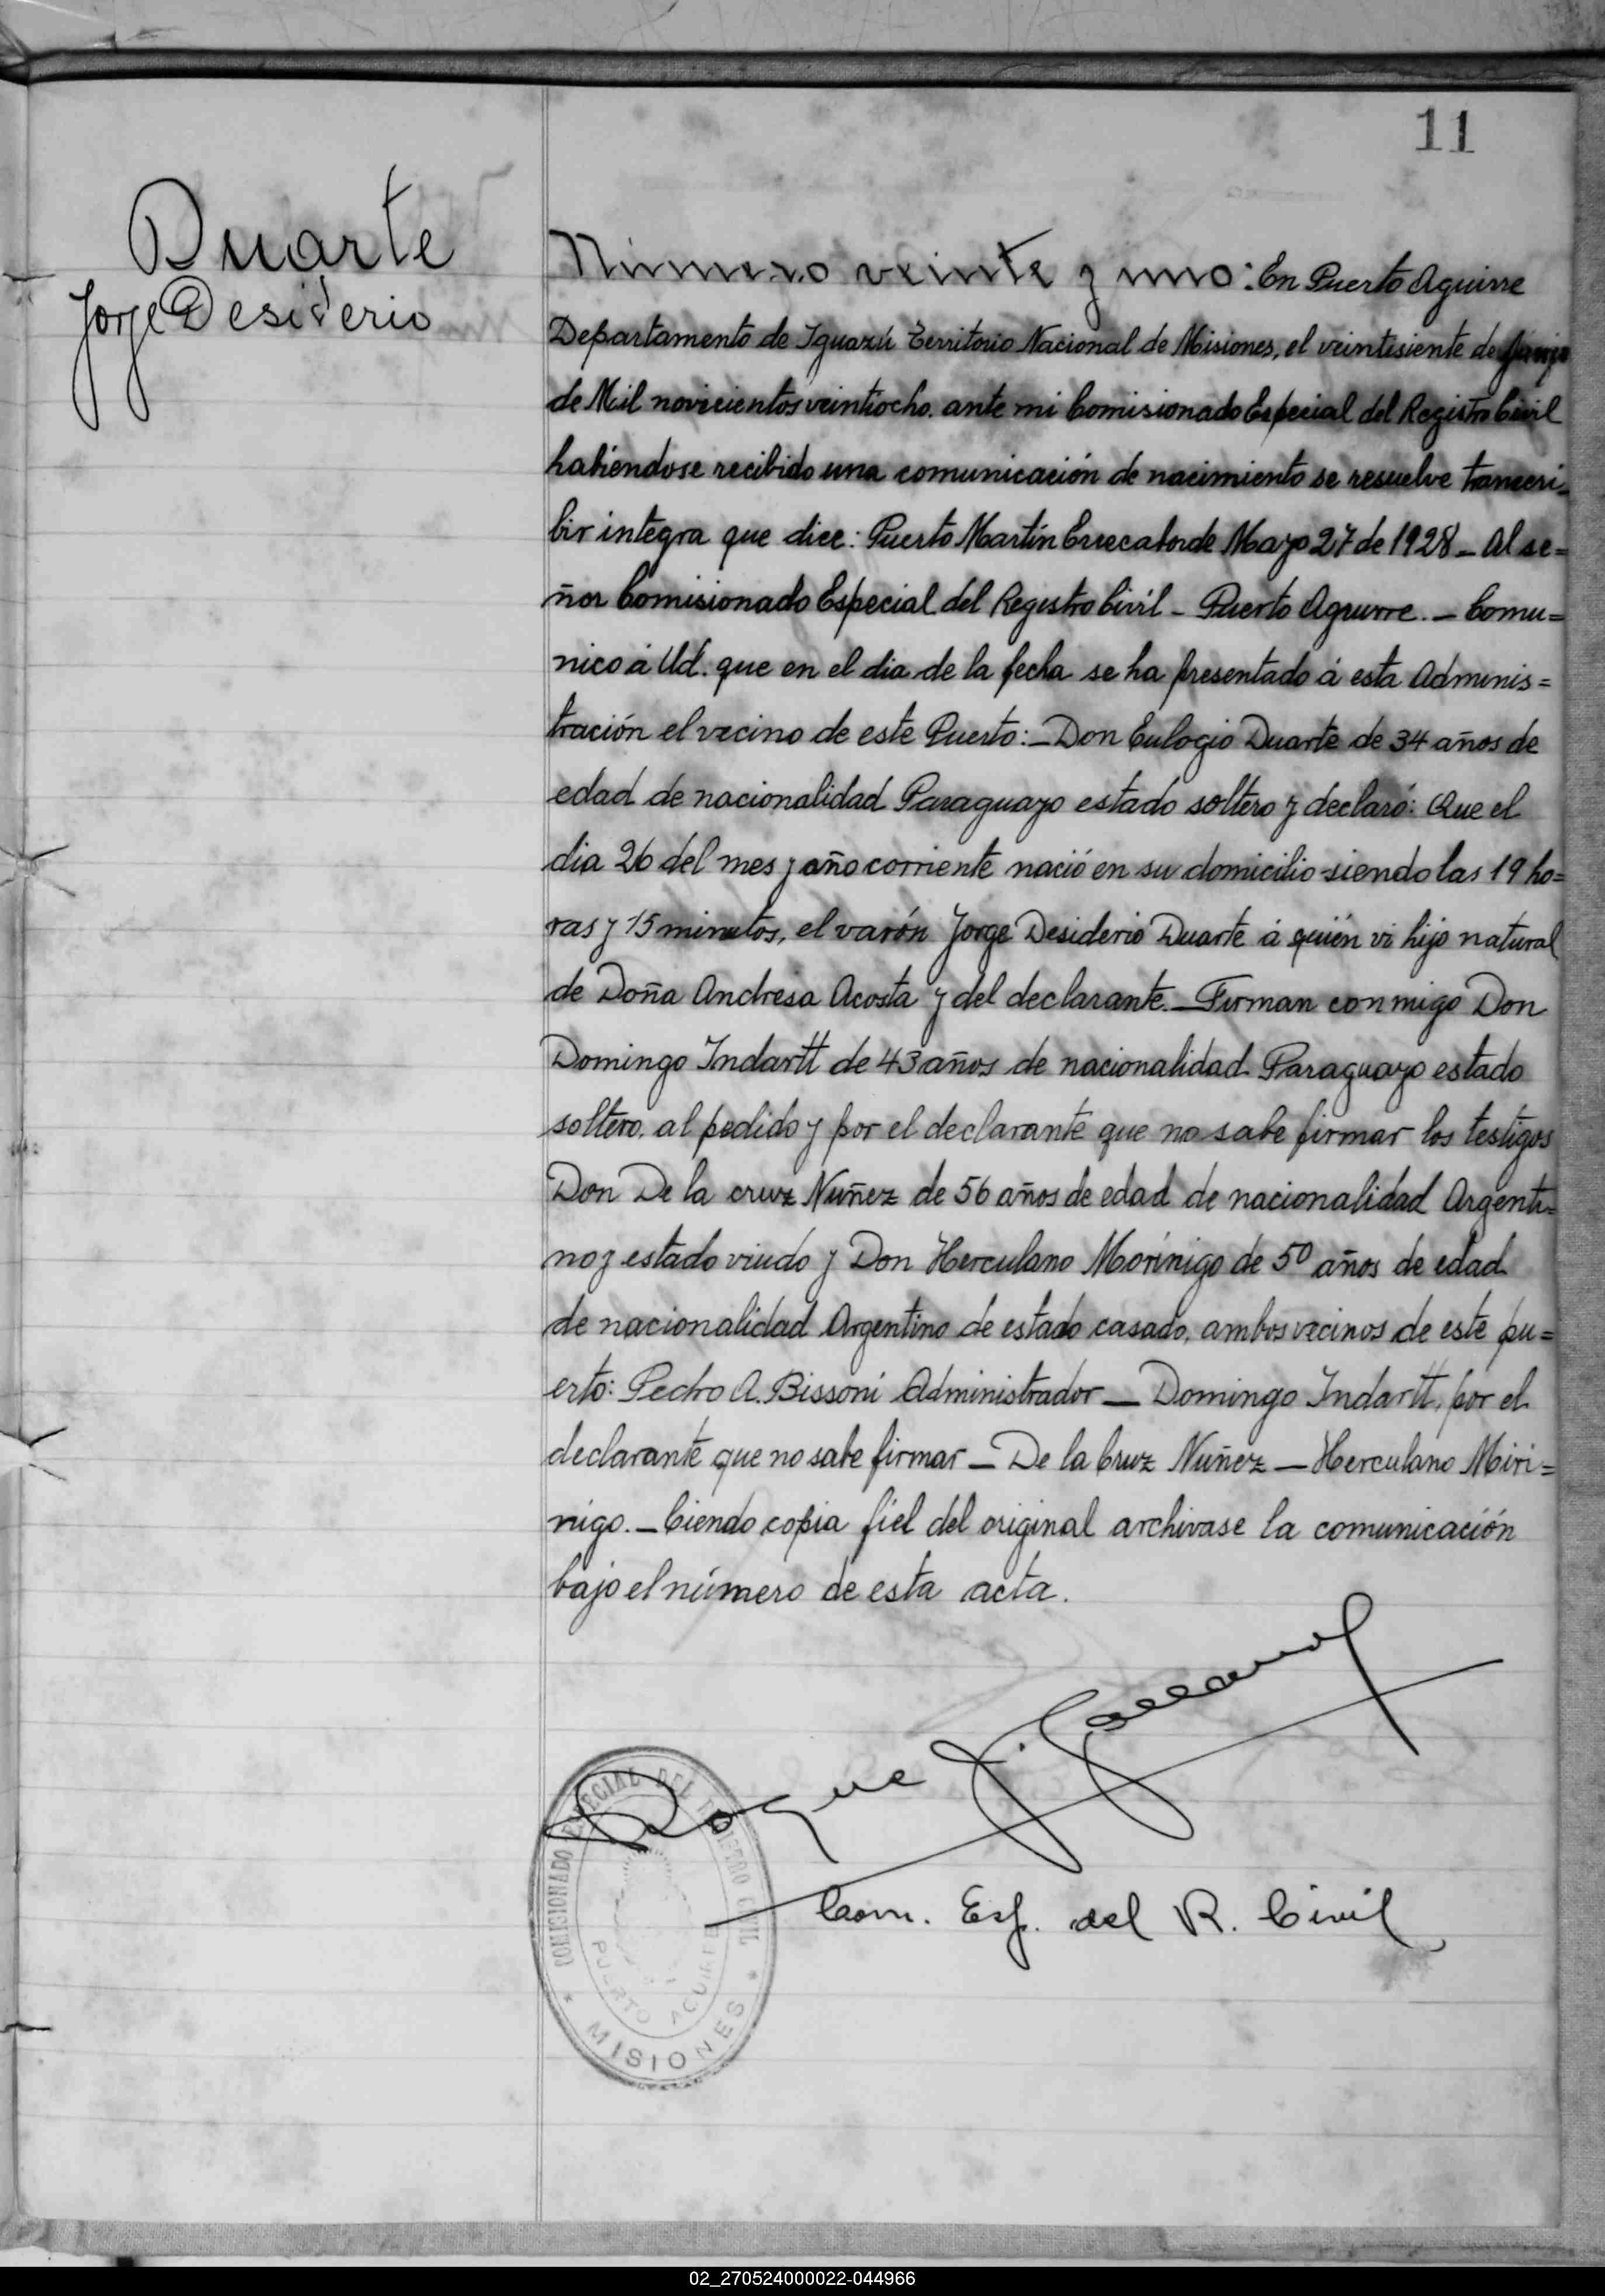 11
Duarte
Jorge Desiderio
Número veinte y uno: En Puerto Aguirre
Departamento de Iguazú Territorio Nacional de Misiones, el veintisiente de
de Mil novicientos veintiocho. ante mi Comisionado Especial del Registro Civil
habiendose recibido una comunicación de nacimiento se resuelve transcri-
bir integra que dice: Puerto Martín Errecaborde Mayo 27 de 1928 – Al se=
ñor Comisionado Especial del Registro Civil – Puerto Aguirre. – Comu=
nico á Ud. que en el dia de la fecha se ha presentado á esta Adminis=
tración el vecino de este Puerto: – Don Eulogio Duarte de 34 años de
edad de nacionalidad Paraguayo estado soltero y declaró: Que el
dia 26 del mes y año corriente nació en su domicilio siendo las 19 ho=
ras y 15 minutos, el varón Jorge Desiderio Duarte á quién vi hijo natural
de Doña Andresa Acosta y del declarante. – Firman conmigo Don
Domingo Indartt de 43 años de nacionalidad Paraguayo estado
soltero, al pedido y por el declarante que no sabe firmar los testigos
Don De la cruz Nuñez de 56 años de edad de nacionalidad Argenti=
no y estado viudo y Don Herculano Morínigo de 50 años de edad
de nacionalidad Argentino de estado casado, ambos vecinos de este pu=
erto: Pedro A. Bissoni Administrador – Domingo Indartt, por el
declarante que no sabe firmar – De la Cruz Nuñez – Herculano Miri=
nigo. – Ciendo copia fiel del original archivase la comunicación
bajo el número de esta acta.
Roque J.
Com. Esp. del R. Civil
COMISIONADO ESPECIAL DEL REGISTRO CIVIL
PUERTO AGUIRRE
* MISIONES *
02_270524000022-044966